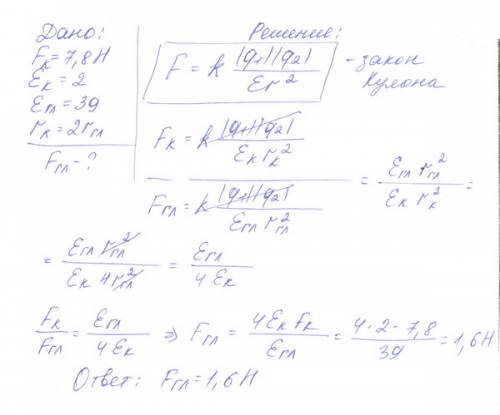 Дано:
Fк = 7,8 Н
Ɛк = 2
Ɛгл = 39
rк = 2rгл
Fгл - ?
Решение:
F = k |q₁||q₂| / Ɛr² - закон Кулона
Fк = k |q₁||q₂| / Ɛк rк²
Fгл = k |q₁||q₂| / Ɛгл rгл²
= Ɛгл rгл² / Ɛк rк² =
= Ɛгл rгл² / Ɛк 4 rгл² = Ɛгл / 4 Ɛк
Fк / Fгл = Ɛгл / 4 Ɛк ⇒ Fгл = 4 Ɛк Fк / Ɛгл = 4 · 2 · 7,8 / 39 = 1,6 Н
Ответ: Fгл = 1,6 Н